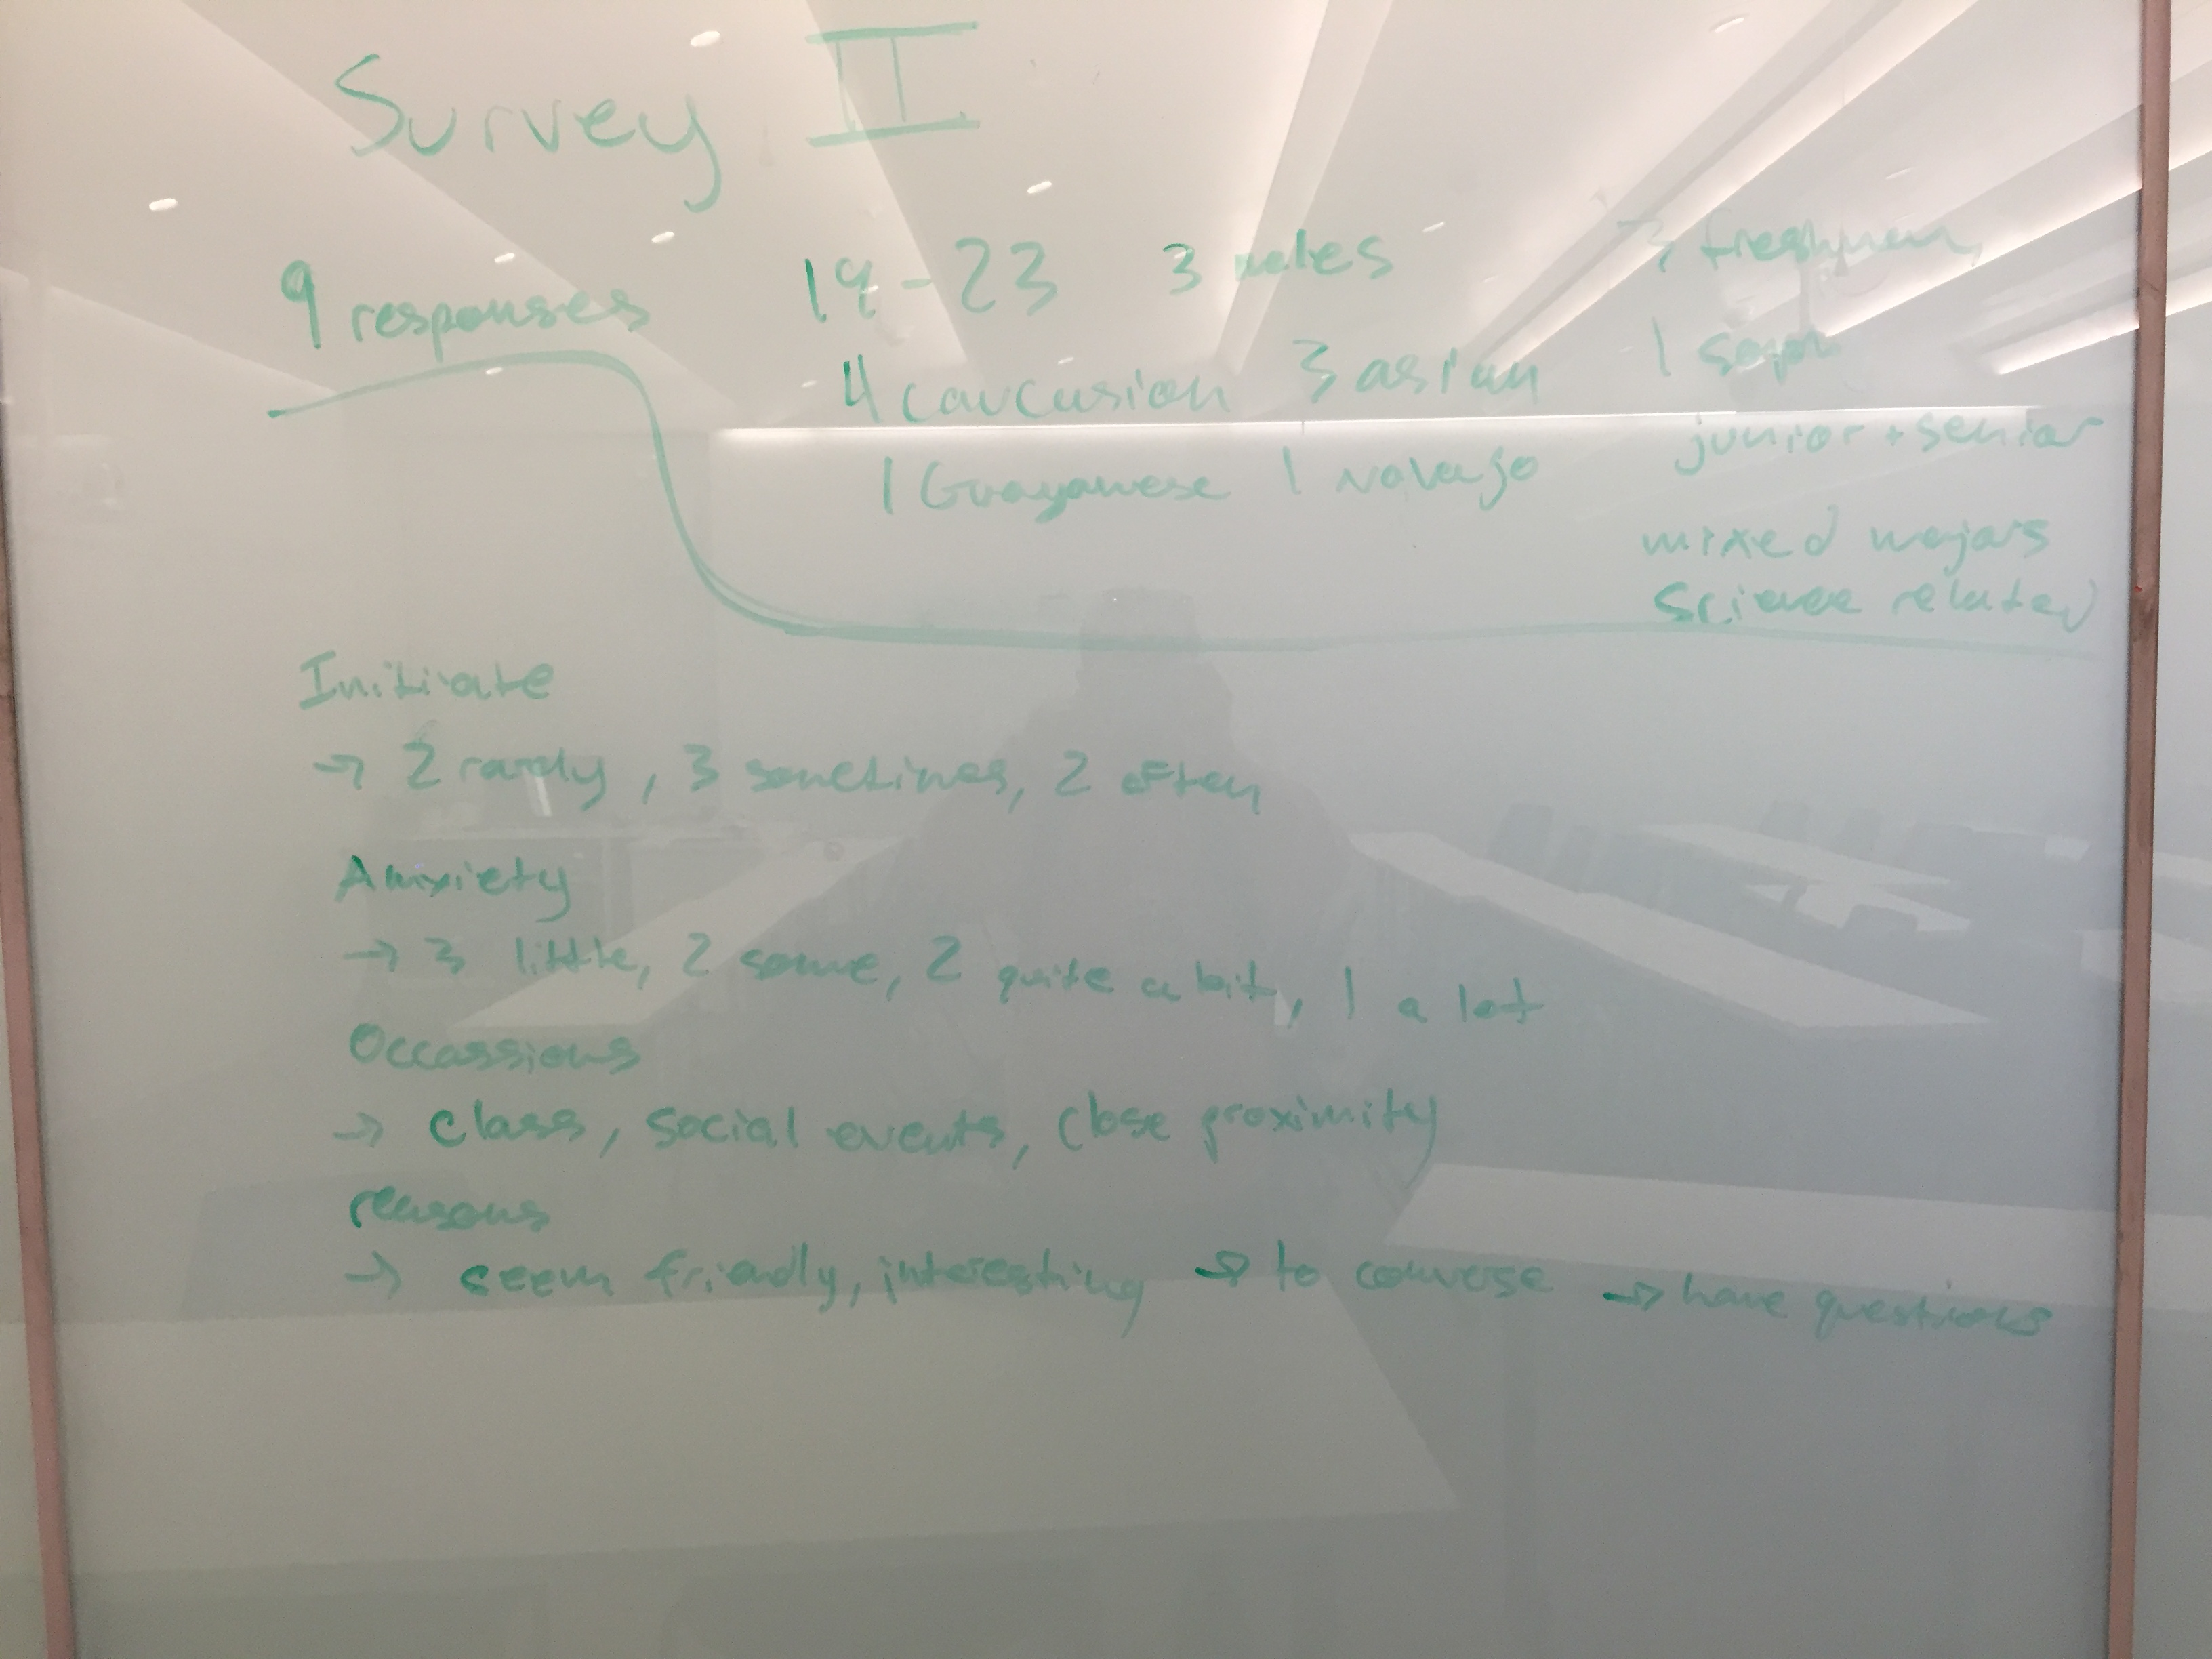 Survey II
9 responses
19-23 3 males
4 caucusion 3 asian
1 Guayanese 1 Navajo
3 freshmen,
1 soph
junior + senior
mixed majors
Science related
Initiate
→ 2 rarely, 3 sometimes, 2 often
Anxiety
→ 3 little, 2 some, 2 quite a bit, 1 a lot
Occassions
→ class, social events, close proximity
reasons
→ seem friendly, interesting → to converse → have questions